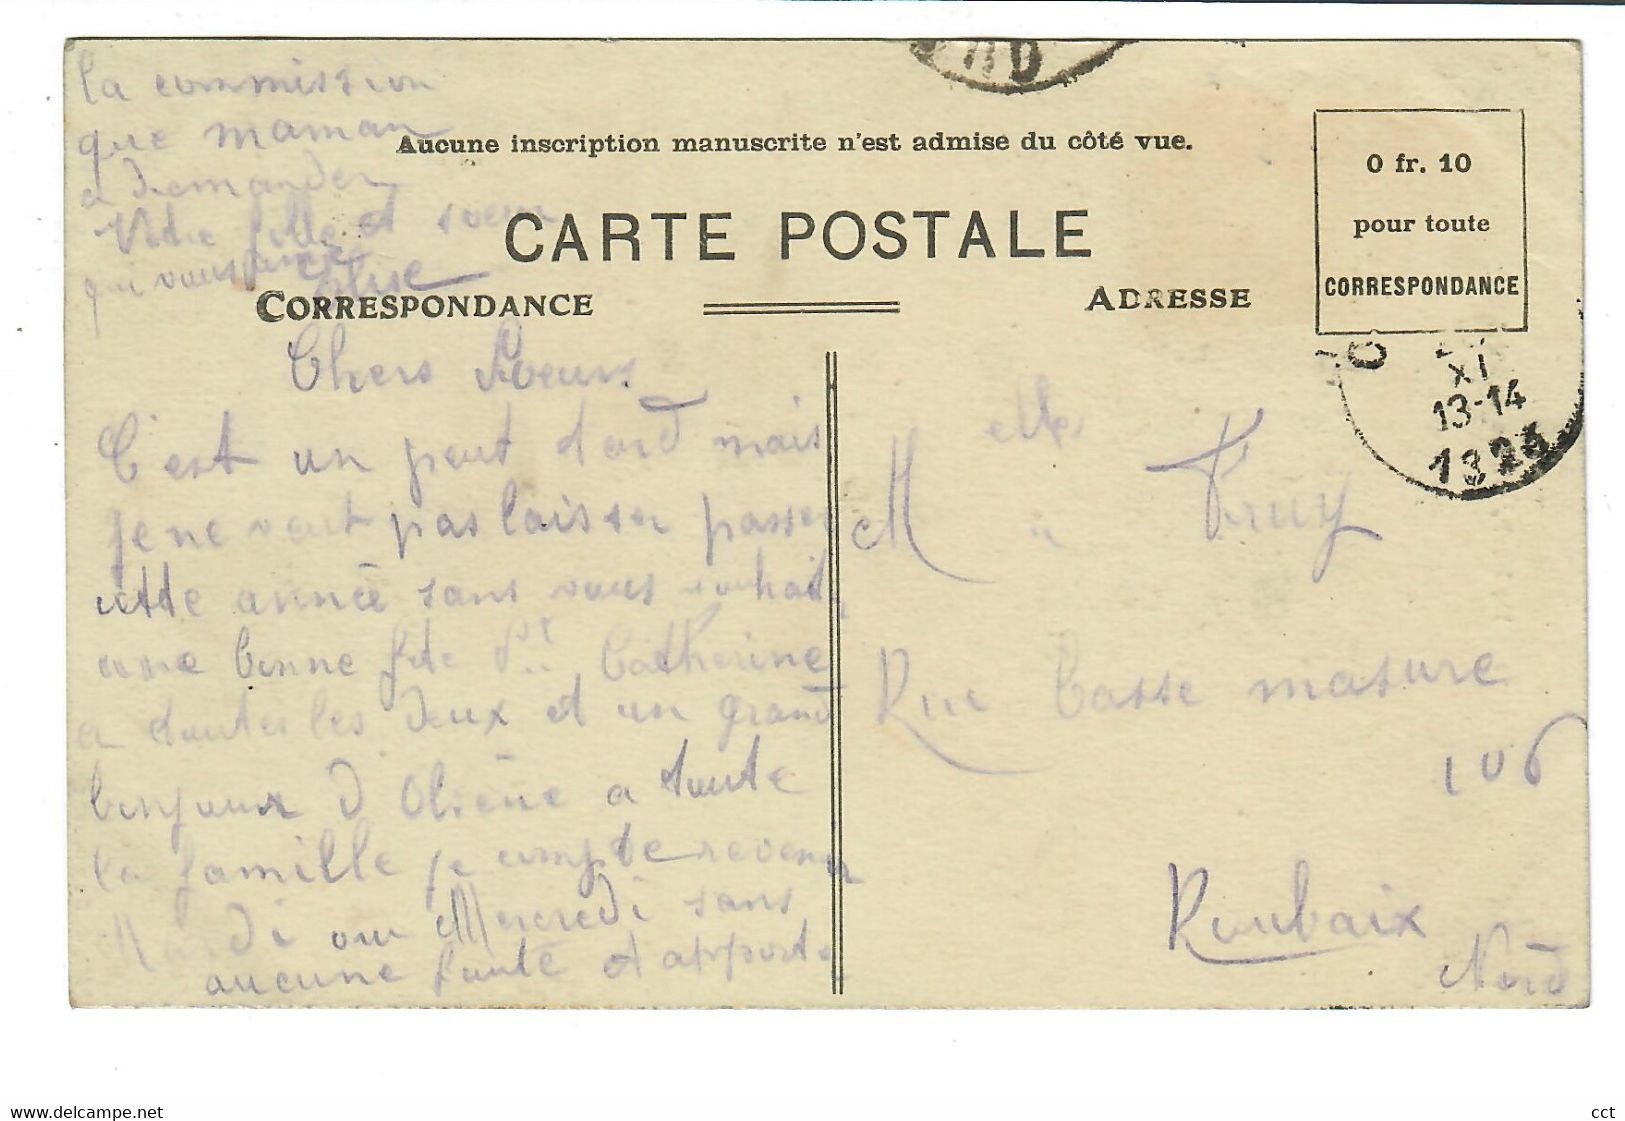 la commission
que maman
a demander
Votre fille et soeur
qui vous
Elise
Aucune inscription manuscrite n'est admise du côté vue.
CARTE POSTALE
CORRESPONDANCE
ADRESSE
0 fr. 10
pour toute
CORRESPONDANCE
XI
13-14
Chers Soeurs
C'est un peut tard mais
je ne veut pas laisser passer
cette année sans vous souhait
une bonne fête Ste Catherine
a toutes les deux et un grand
bonjour a toute
la famille je compte revenir
Mardi ou Mercredi sans
aucune faute et apporte
Melle
Rue basse masure
106
Roubaix
Nord
www.delcampe.net
cct